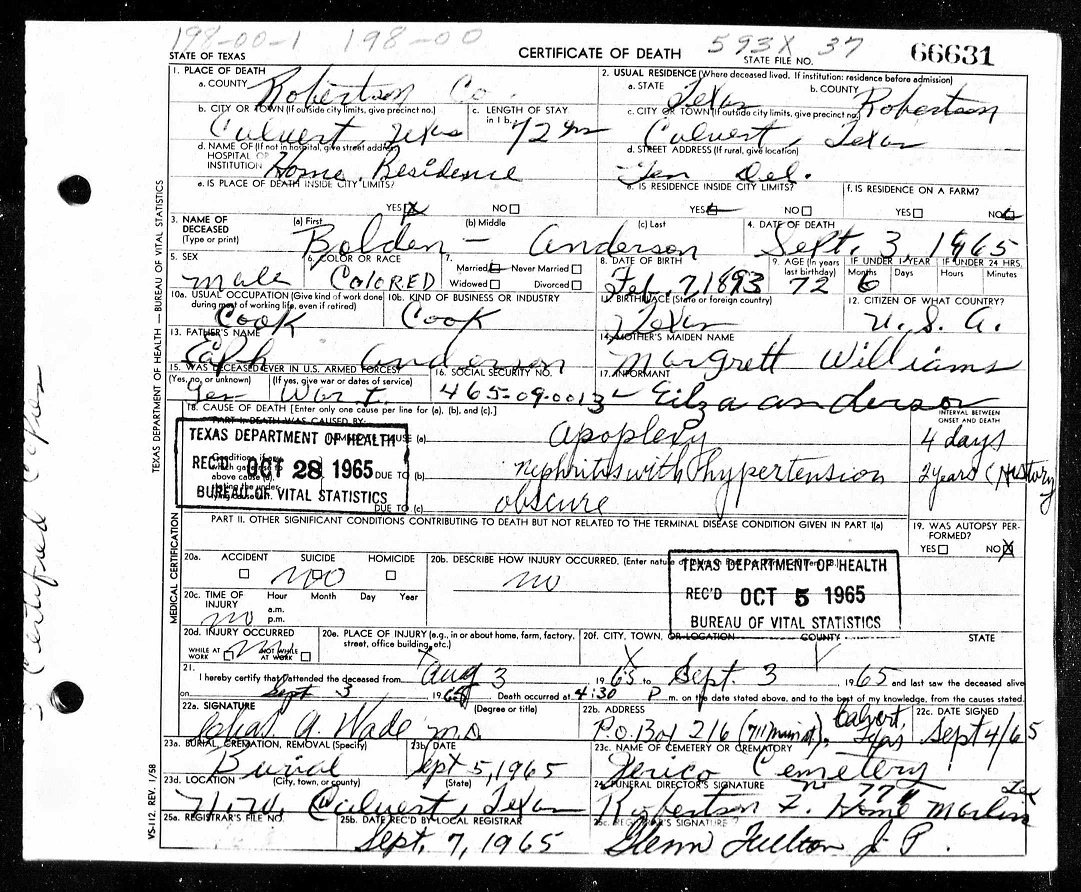 198-00-1 198-00 593X 37
STATE OF TEXAS CERTIFICATE OF DEATH STATE FILE NO. 66631
1. PLACE OF DEATH
a. COUNTY Robertson Co.
2. USUAL RESIDENCE (Where deceased lived. If institution: residence before admission)
a. STATE Texas b. COUNTY Robertson
b. CITY OR TOWN (If outside city limits, give precinct no.) Calvert, Texas
c. LENGTH OF STAY in 1 b. 72 yrs
c. CITY OR TOWN (If outside city limits, give precinct no.) Calvert, Texas
d. NAME OF (If not in hospital, give street address) HOSPITAL OR INSTITUTION Home Residence
d. STREET ADDRESS (If rural, give location) Gen Del.
e. IS PLACE OF DEATH INSIDE CITY LIMITS? YES X NO
e. IS RESIDENCE INSIDE CITY LIMITS? YES NO
f. IS RESIDENCE ON A FARM? YES NO
3. NAME OF DECEASED (Type or print)
(a) First (b) Middle (c) Last
Bolden — Anderson
4. DATE OF DEATH Sept. 3 1965
5. SEX Male
6. COLOR OR RACE COLORED
7. Married Never Married Widowed Divorced
8. DATE OF BIRTH Feb. 7, 1893
9. AGE (In years last birthday) 72
IF UNDER 1 YEAR Months 6 Days
IF UNDER 24 HRS. Hours Minutes
10a. USUAL OCCUPATION (Give kind of work done during most of working life, even if retired) Cook
10b. KIND OF BUSINESS OR INDUSTRY Cook
11. BIRTHPLACE (State or foreign country) Texas
12. CITIZEN OF WHAT COUNTRY? U.S.A.
13. FATHER'S NAME Eaph Anderson
14. MOTHER'S MAIDEN NAME Margrett Williams
15. WAS DECEASED EVER IN U.S. ARMED FORCES?
(Yes, no, or unknown) (If yes, give war or dates of service)
Yes War I
16. SOCIAL SECURITY NO. 465-09-0013
17. INFORMANT Eilza Anderson
18. CAUSE OF DEATH [Enter only one cause per line for (a), (b), and (c).]
INTERVAL BETWEEN ONSET AND DEATH
PART I. DEATH WAS CAUSED BY:
IMMEDIATE CAUSE (a) Apoplexy 4 days
DUE TO (b) Nephritis with hypertension 2 years (History
DUE TO (c) obscure
TEXAS DEPARTMENT OF HEALTH
REC'D OCT 28 1965
BUREAU OF VITAL STATISTICS
PART II. OTHER SIGNIFICANT CONDITIONS CONTRIBUTING TO DEATH BUT NOT RELATED TO THE TERMINAL DISEASE CONDITION GIVEN IN PART I(a)
19. WAS AUTOPSY PERFORMED? YES NO X
20a. ACCIDENT SUICIDE HOMICIDE
20b. DESCRIBE HOW INJURY OCCURRED. no
TEXAS DEPARTMENT OF HEALTH
REC'D OCT 5 1965
BUREAU OF VITAL STATISTICS
20c. TIME OF INJURY Hour Month Day Year
a.m.
p.m.
no
20d. INJURY OCCURRED
WHILE AT WORK NOT WHILE AT WORK
20e. PLACE OF INJURY (e.g., in or about home, farm, factory, street, office building, etc.)
20f. CITY, TOWN, OR LOCATION COUNTY STATE
21. I hereby certify that I attended the deceased from Aug 3 1965 to Sept. 3 1965 and last saw the deceased alive
on Sept 3 1965 Death occurred at 4:30 P.m. on the date stated above, and to the best of my knowledge, from the causes stated.
22a. SIGNATURE (Degree or title) Chas. A. Wade M.D.
22b. ADDRESS P.O. Box 216 (711 Main st), Calvert, Texas
22c. DATE SIGNED Sept 4/65
23a. BURIAL, CREMATION, REMOVAL (Specify) Burial
23b. DATE Sept 5, 1965
23c. NAME OF CEMETERY OR CREMATORY Jerico Cemetery
23d. LOCATION (City, town, or county) (State) Calvert, Texas
24. FUNERAL DIRECTOR'S SIGNATURE Robertson F. Home Marlin Tex
25a. REGISTRAR'S FILE NO.
25b. DATE REC'D BY LOCAL REGISTRAR Sept. 7, 1965
25c. REGISTRAR'S SIGNATURE Glenn Fulton J.P.
TEXAS DEPARTMENT OF HEALTH — BUREAU OF VITAL STATISTICS
MEDICAL CERTIFICATION
VS-112, REV. 1/58
Certified Copies